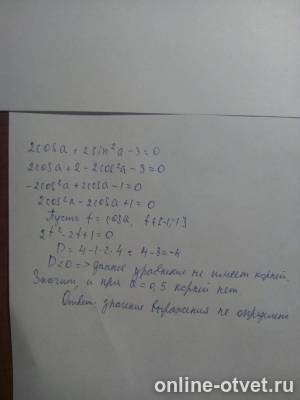 2cosa + 2sin²a - 3 = 0
2cosa + 2 - 2cos²a - 3 = 0
-2cos²a + 2cosa - 1 = 0
2cos²a - 2cosa + 1 = 0
Пусть t = cosa, t∈[-1;1]
2t² - 2t + 1 = 0
D = 4 - 1·2·4 = 4-3=-4
D<0 => данное уравнение не имеет корней.
Значит, и при a = 0,5 корней нет
Ответ: значение выражения не определено
online-otvet.ru